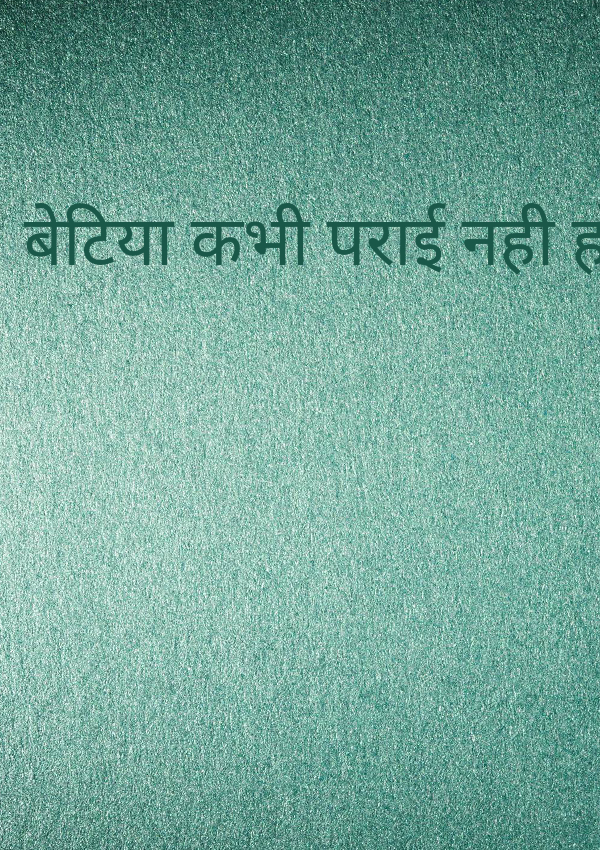 बेटिया कभी पराई नही